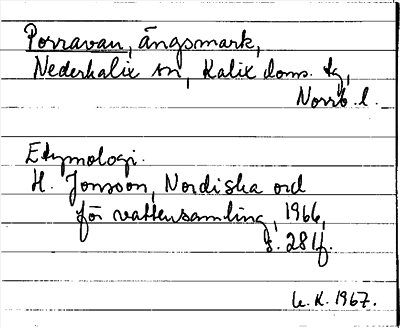 Porravan, ängsmark,
Nederkalix sn, Kalix doms. tg,
Norrb. l.
Etymologi.
H. Jonsson, Nordiska ord
för vattensamling, 1966,
s. 281f.
U. K. 1967.